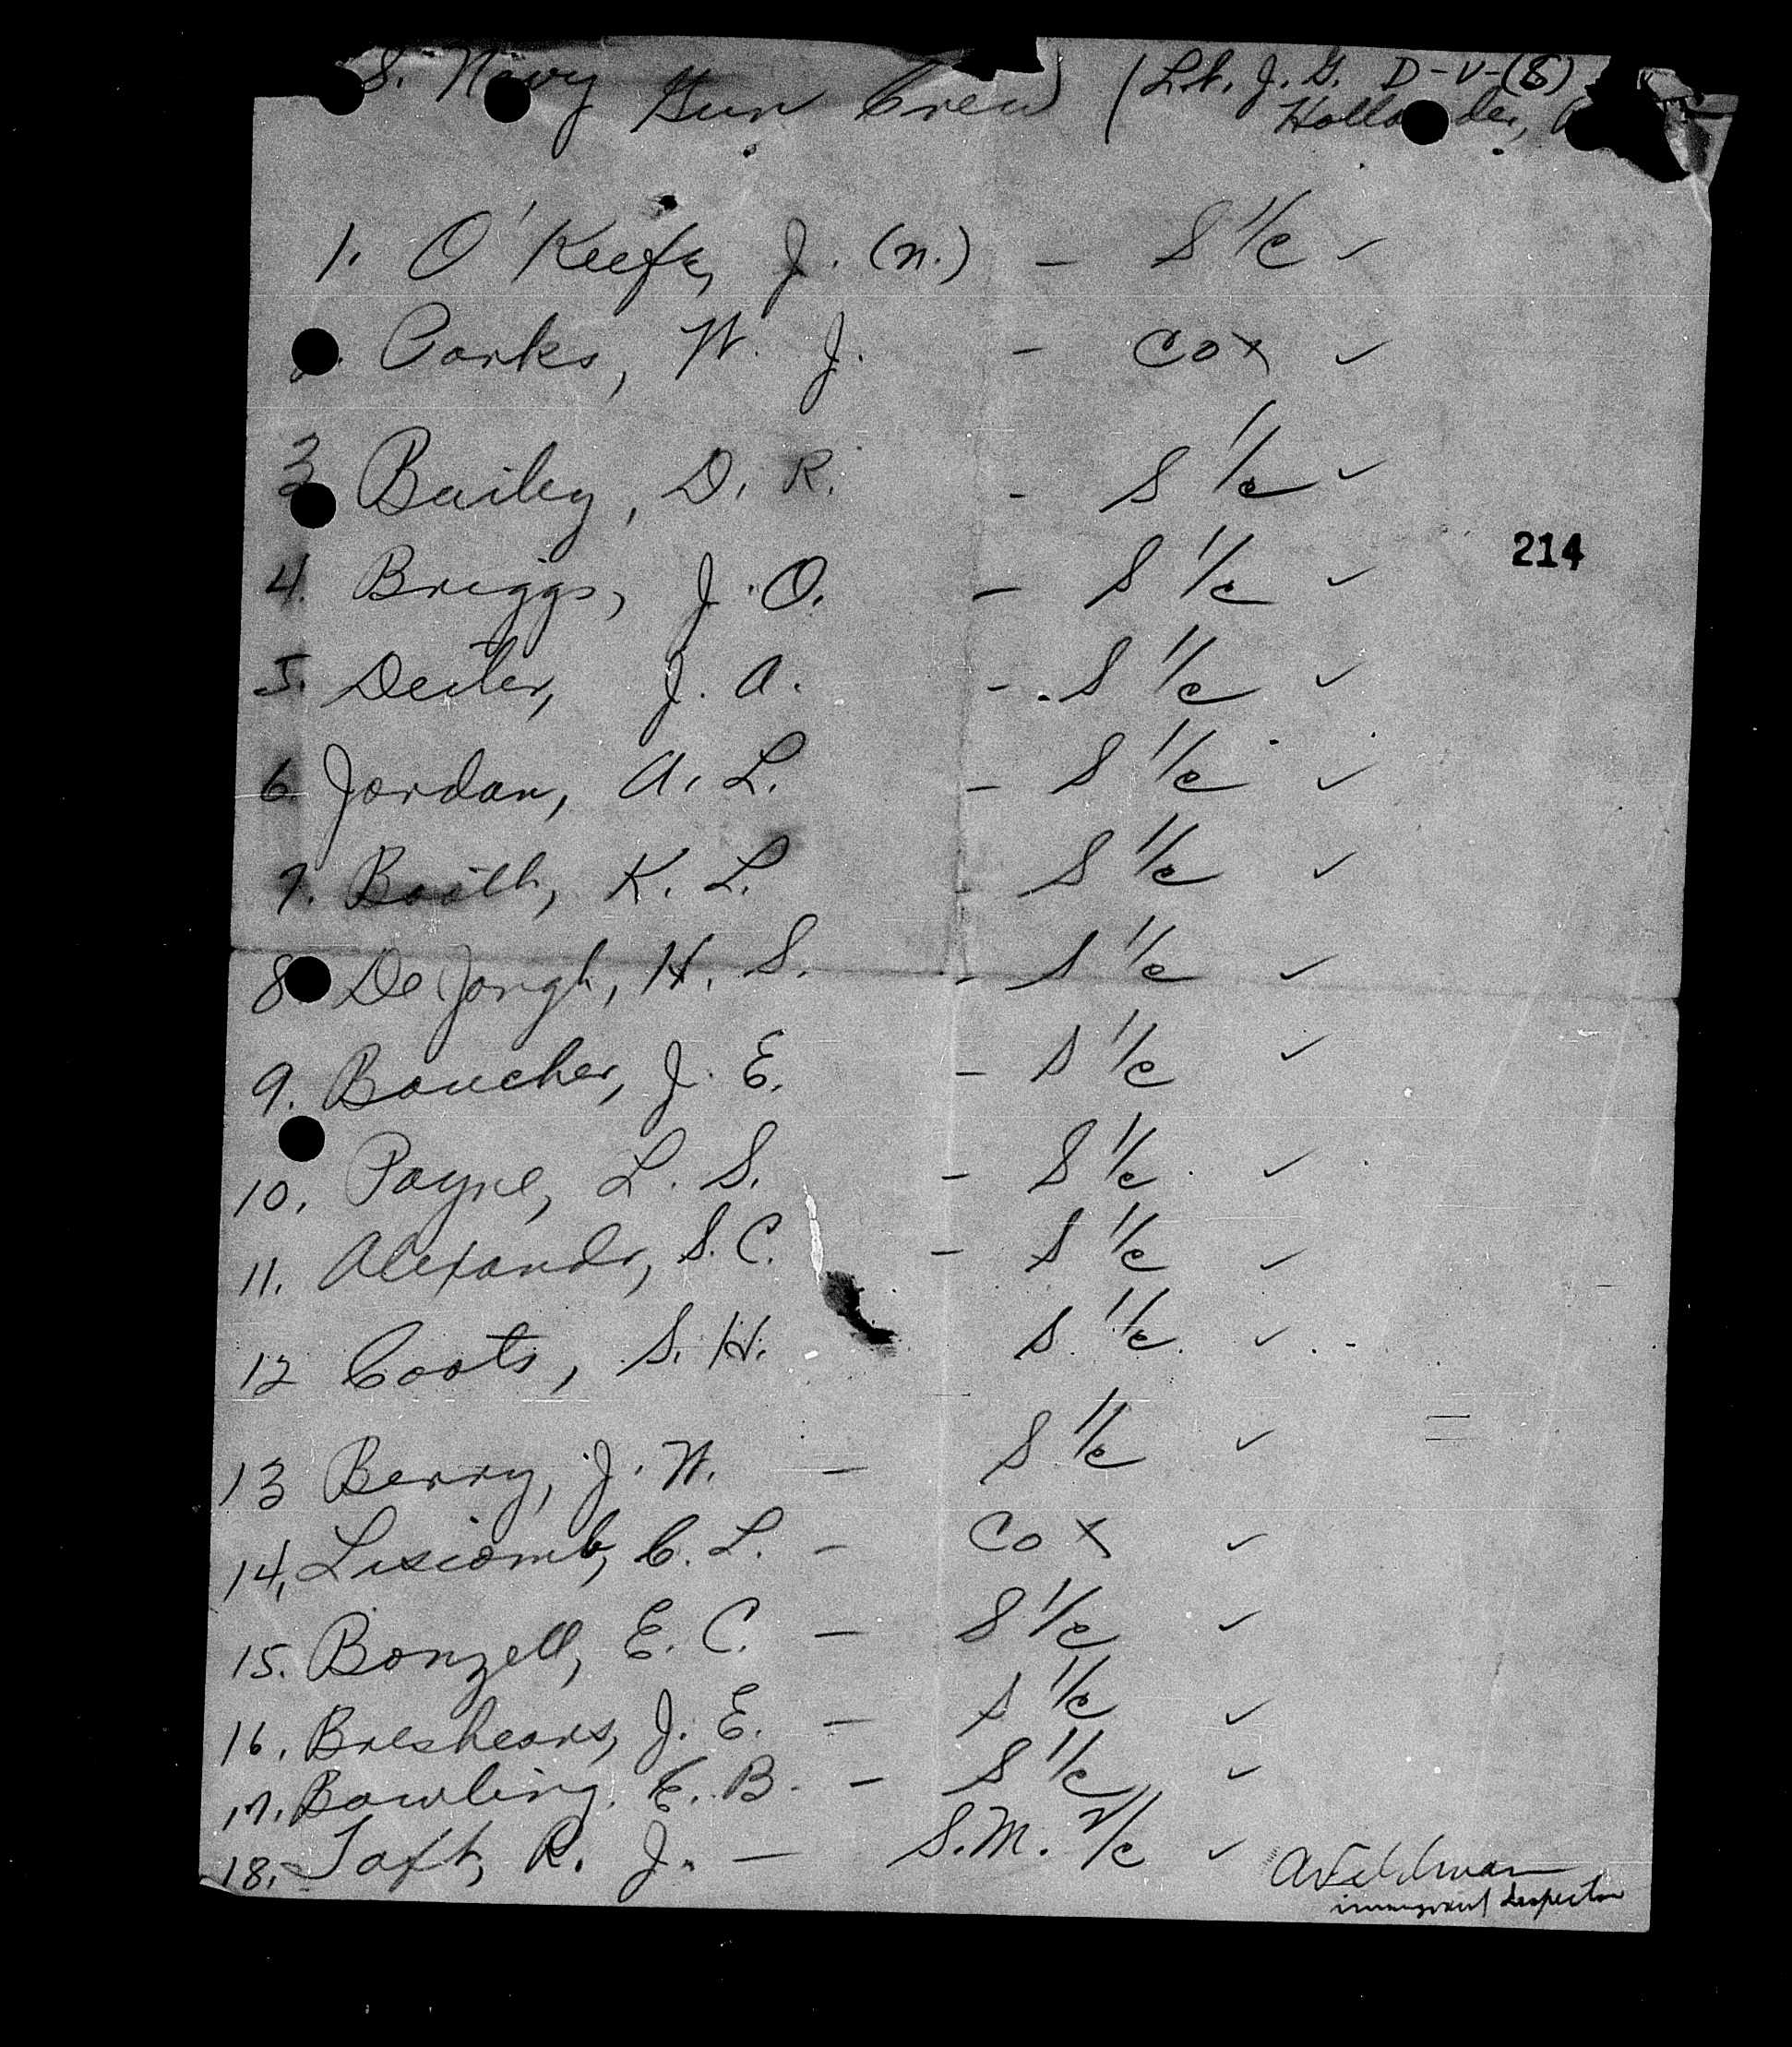 S. Navy Gun Crew (Lt. J. G. D-V-(S)
Hollander,
1. O'Keefe, J. (n.) - S 1/c ✓
Parks, W. J. - Cox ✓
3 Bailey, D. R. - S 1/c ✓
214
4. Briggs, J. O. - S 1/c ✓
5. Deiter, J. A. - S 1/c ✓
6. Jordan, A. L. - S 1/c ✓
7. Booth, K. L. - S 1/c ✓
8. DeJongh, H. S. - S 1/c ✓
9. Boucher, J. E. - S 1/c ✓
10. Payne, L. S. - S 1/c ✓
11. Alexandr, S. C. - S 1/c ✓
12 Coots, S. H. S 1/c ✓
13 Berry, J. W. - S 1/c ✓
14. Lisicomb, C. L. - Cox ✓
15. Bonzell, E. C. - S 1/c ✓
16. Breshears, J. E. - S 1/c ✓
17. Bowling, C. B. - S 1/c ✓
18. Taft, R. J. - S.M. 2/c ✓
A Feldman
immigrant Inspector